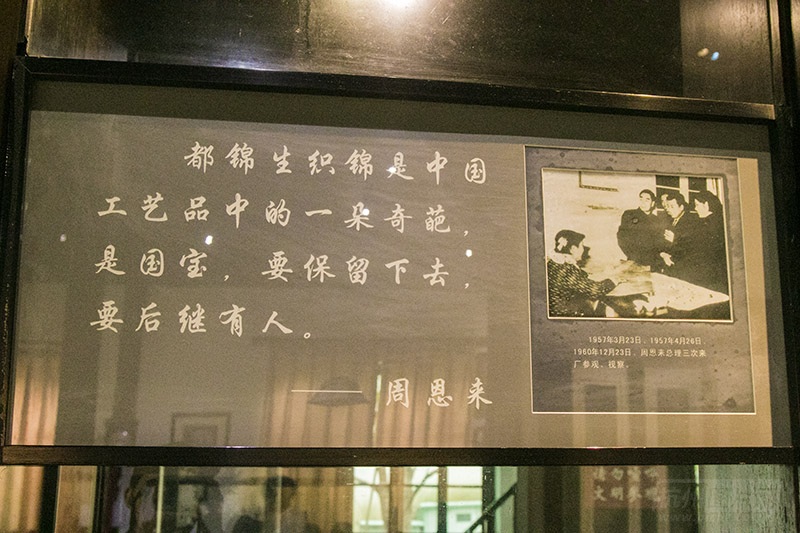 都锦生织锦是中国
工艺品中的一朵奇葩，
是国宝，要保留下去，
要后继有人。
——周恩来
1957年3月23日、1957年4月26日、
1960年12月23日，周恩来总理三次来
厂参观、视察。